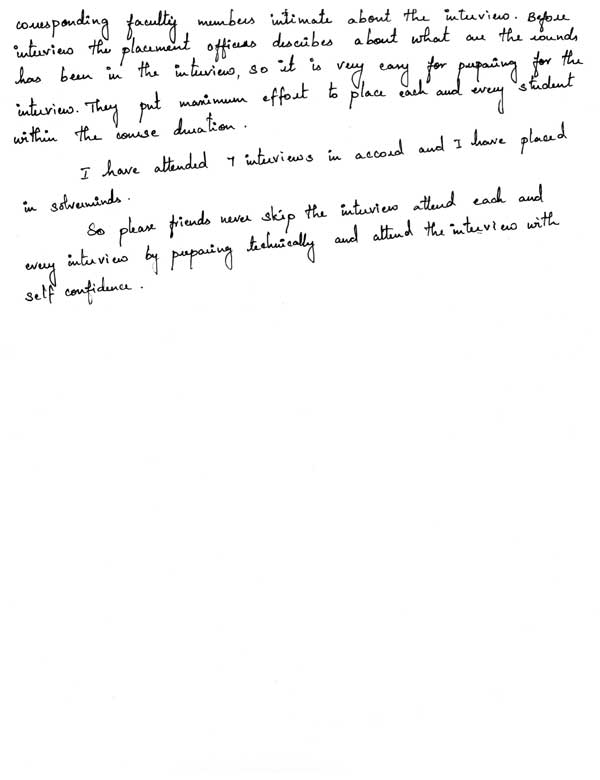 corresponding faculty members intimate about the interview. Before
interview the placement officers describes about what are the rounds
has been in the interview, so it is very easy for preparing for the
interview. They put maximum effort to place each and every student
within the course duration.
I have attended 7 interviews in accord and I have placed
in solverminds.
So please friends never skip the interview attend each and
every interview by preparing technically and attend the interview with
self confidence.